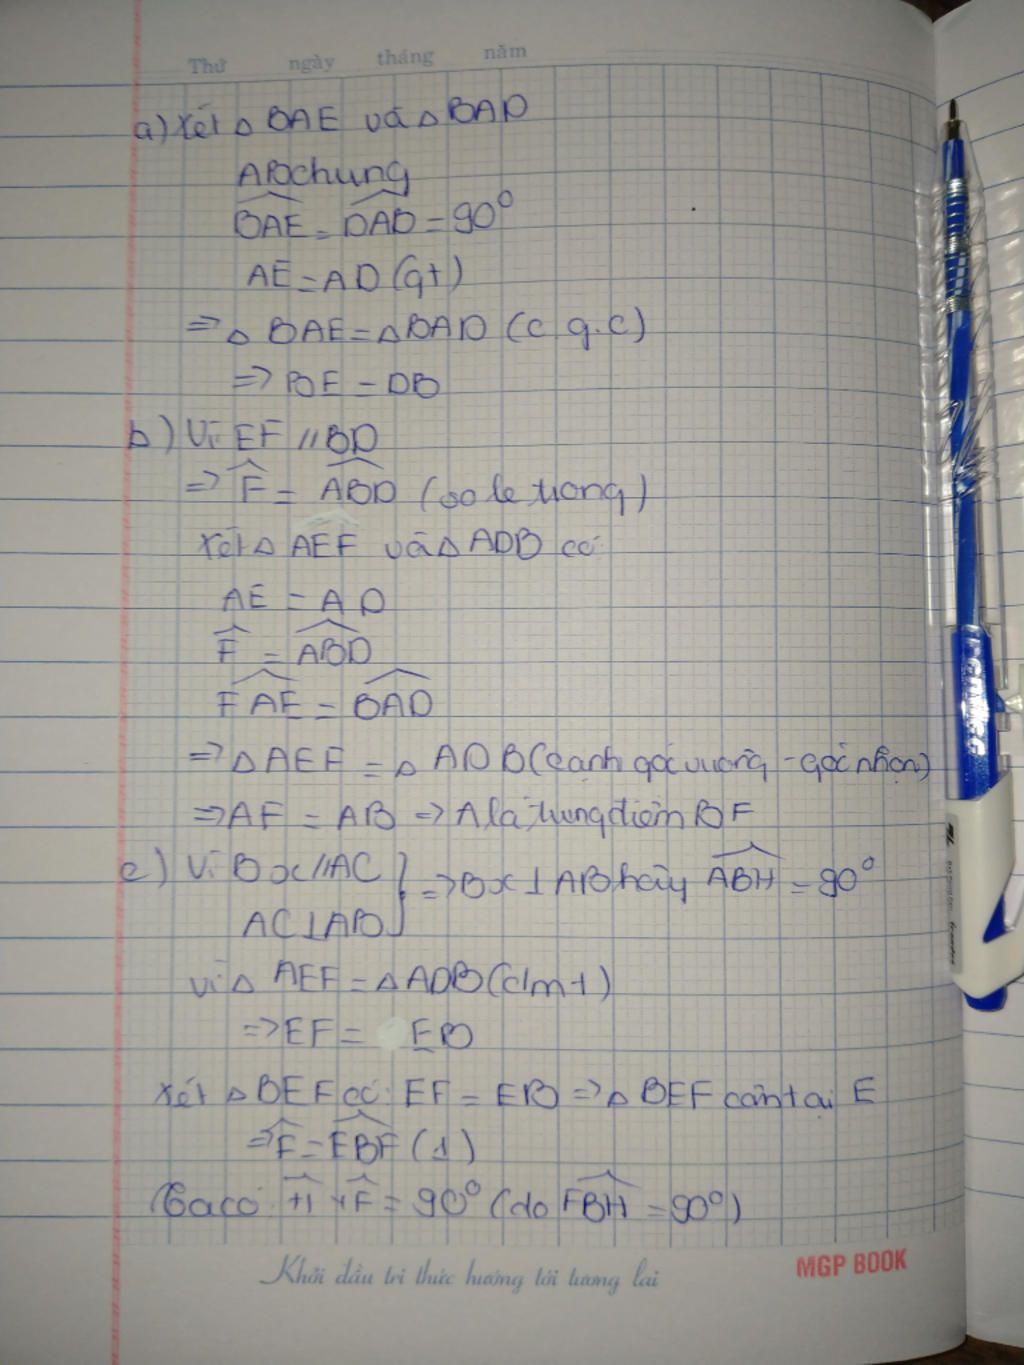 Thứ ngày tháng năm
a) Xét △ BAE và △ BAD
AB chung
BAE = BAD = 90°
AE = AD (gt)
=> △ BAE = △ BAD (c.g.c)
=> BE = DB
b) Vì EF // BD
=> F = ABD (so le trong)
Xét △ AEF và △ ADB có
AE = AD
F = ABD
FAE = BAD
=> △ AEF = △ ADB (cạnh góc vuông - góc nhọn)
=> AF = AB => A là trung điểm BF
c) Vì Bx // AC } => Bx ⊥ AB hay ABH = 90°
AC ⊥ AB
vì △ AEF = △ ADB (cmt)
=> EF = EB
Xét △ BEF có: EF = EB => △ BEF cân tại E
=> F = EBF (1)
Ta có: H + F = 90° (do FBH = 90°)
Khởi đầu tri thức hướng tới tương lai
MGP BOOK